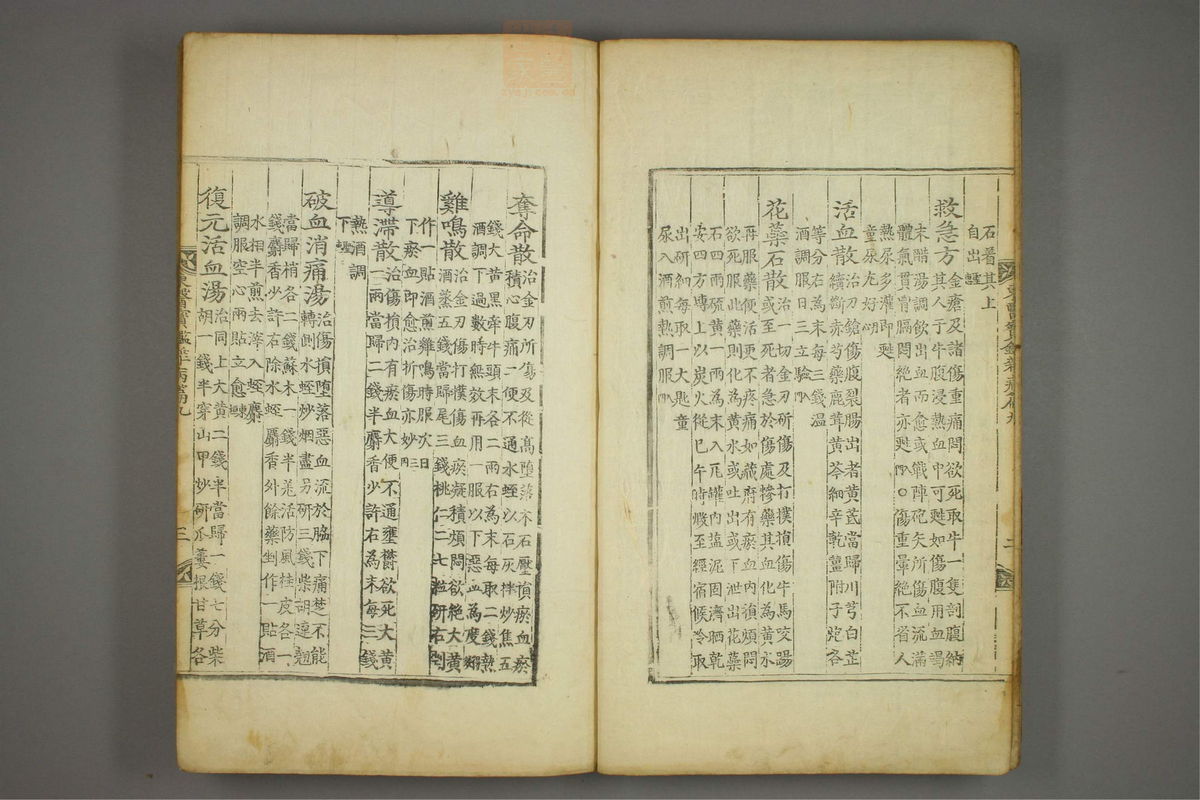 石着其上
自出
救急方
金瘡及諸傷重痛悶欲死取牛一隻剖腹納
其人于牛腹浸熱血中可甦如傷腹用血竭
末醋湯調飲出血而愈或戰陣砲矢所傷血流滿
體氣貫胷膈悶絶者亦甦入門○傷重暈絶不省人
熱尿多灌即甦
童尿尤好
活血散
治刃鎗傷腹裂腸出者黃芪當歸川芎白芷
續斷赤芍藥鹿茸黃芩細辛乾薑附子炮各
等分右為末每三錢温
酒調服日三立驗入門
花蘂石散
治一切金刃斫傷及打撲損傷牛馬咬踢
或至死者急於傷處摻藥其血化為黃水
再服藥便活更不疼痛如藏府有瘀血內損煩悶
欲死服此藥則化為黃水或吐出或下泄出花蘂
石四兩硫黃一兩為末入瓦罐內塩泥固濟晒乾
安四方塼上以炭火從巳午時煆至經宿候冷取
出研細每取一大匙童
尿入酒煎熱調服入門
東醫寶鑑雜病篇九
二
奪命散
治金刃所傷及從高墮落木石壓損瘀血瘀
積心腹痛二便不通水蛭以石灰拌炒焦五
錢大黃黑牽牛頭末各二兩右為末每取二錢熱
酒調下過數時無效再用一服以下惡血為度
雞鳴散
治金刃傷打撲傷血瘀凝積煩悶欲絶大黃
酒蒸五錢當歸尾三錢桃仁二七粒研右剉
作一貼酒煎雞鳴時服次日
下瘀血即愈治折傷亦妙
導滯散
治傷損內有瘀血大便不通壅欝欲死大黃
一兩當歸二錢半麝香少許右為末每三錢
熱酒調
下
破血消痛湯
治傷損堕落惡血流於脇下痛楚不能
轉側水蛭炒烟盡另研三錢柴胡連翹
當歸梢各二錢蘇木一錢半羌活防風桂皮各一
錢麝香少許右除水蛭麝香外餘藥剉作一貼酒
水相半煎去滓入蛭麝
調服空心兩貼立愈
復元活血湯
治同上大黃二錢半當歸一錢七分柴
胡一錢半穿山甲炒研瓜蔞根甘草各
東醫寶鑑雜病篇九
三